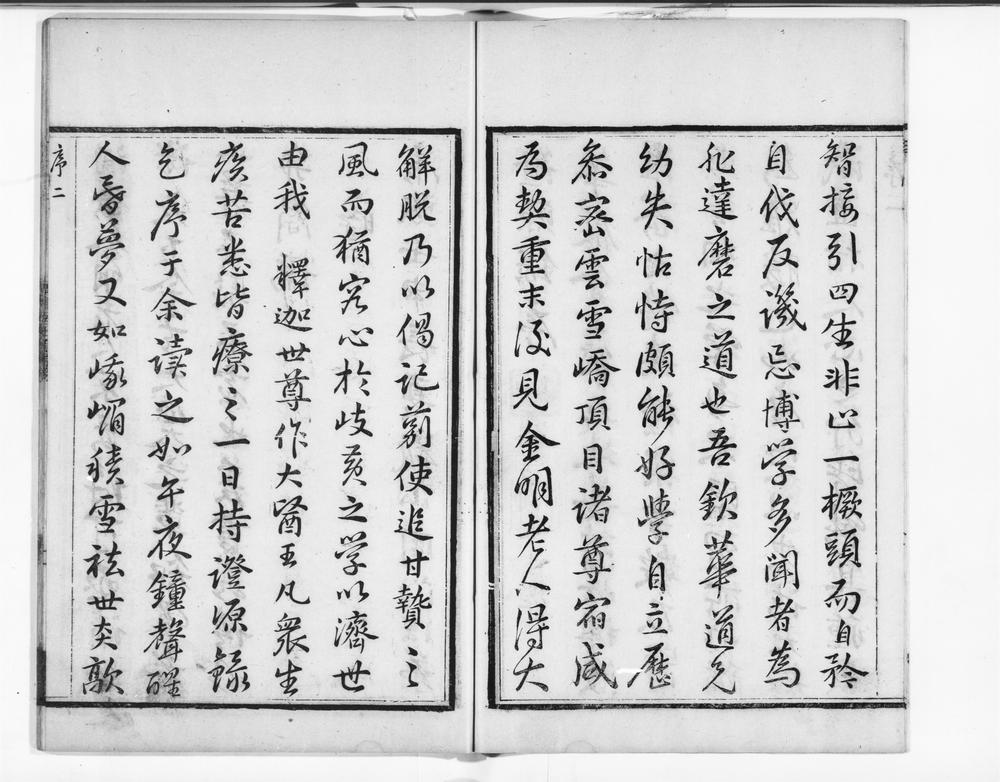 智接引四生非止一橛頭而自矜
自伐反譏忌博學多聞者為
非達磨之道也吾欽華道兄
幼失怙恃頗能好學自立歷
叅密雲雪嶠頂目諸尊宿咸
為契重末後見金明老人得大
解脫乃以偈記莂使追甘贄之
風而猶究心於歧黃之学以濟世
由我釋迦世尊作大醫王凡衆生
疾苦悉皆療之一日持證源錄
乞序于余读之如午夜鐘聲醒
人昏夢又如峨嵋積雪祛世炎歊
序二